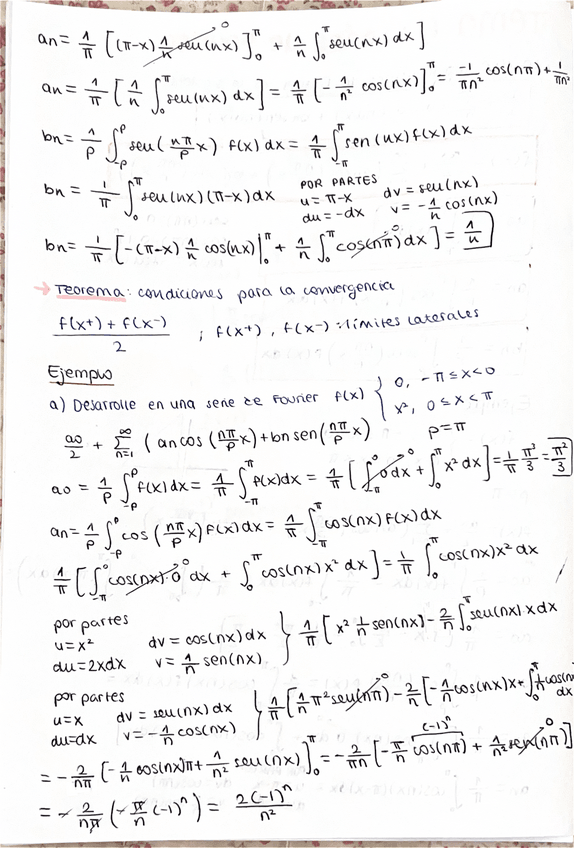 an = 1/π [(π-x) 1/n sen(nx)]₀^π + 1/n ∫₀^π sen(nx) dx]
an = 1/π [1/n ∫₀^π sen(nx) dx] = 1/π [-1/n² cos(nx)]₀^π = -1/πn² cos(nπ) + 1/πn²
bn = 1/p ∫₋ₚ^p sen(nπ/p x) f(x) dx = 1/π ∫₋π^π sen(nx) f(x) dx
bn = 1/π ∫₀^π sen(nx)(π-x) dx
POR PARTES
u = π-x dv = sen(nx)
du = -dx v = -1/n cos(nx)
bn = 1/π [-(π-x) 1/n cos(nx)|₀^π + 1/n ∫₀^π cos(nπ) dx] = 1/n
→ Teorema: condiciones para la convergencia
f(x+) + f(x-) / 2 ; f(x+), f(x-): límites laterales
Ejemplo
a) Desarrolle en una serie de Fourier f(x) { 0, -π ≤ x < 0
x², 0 ≤ x < π
a0/2 + Σₙ₌₁^∞ (an cos(nπ/p x) + bn sen(nπ/p x) p = π
a0 = 1/p ∫₋ₚ^p f(x) dx = 1/π ∫₋π^π f(x) dx = 1/π [∫₋π^0 0 dx + ∫₀^π x² dx] = 1/π π³/3 = π²/3
an = 1/p ∫₋ₚ^p cos(nπ/p x) f(x) dx = 1/π ∫₋π^π cos(nx) f(x) dx
1/π [∫₋π^0 cos(nx)·0 dx + ∫₀^π cos(nx) x² dx] = 1/π ∫₀^π cos(nx) x² dx
por partes
u = x² dv = cos(nx) dx
du = 2xdx v = 1/n sen(nx)
} 1/π [x² 1/n sen(nx) - 2/n ∫₀^π sen(nx) x dx
por partes
u = x dv = sen(nx) dx
du = dx v = -1/n cos(nx)
} 1/π [1/n π² sen(nπ) - 2/n [-1/n cos(nx) x + ∫₀^π 1/n cos(nx) dx
= -2/nπ [-1/n cos(nx)π + 1/n² sen(nx)]₀^π = -2/πn [-π/n cos(nπ) (-1)ⁿ + 1/n² sen(nπ)]
= -2/nπ (-π/n (-1)ⁿ) = 2(-1)ⁿ/n²